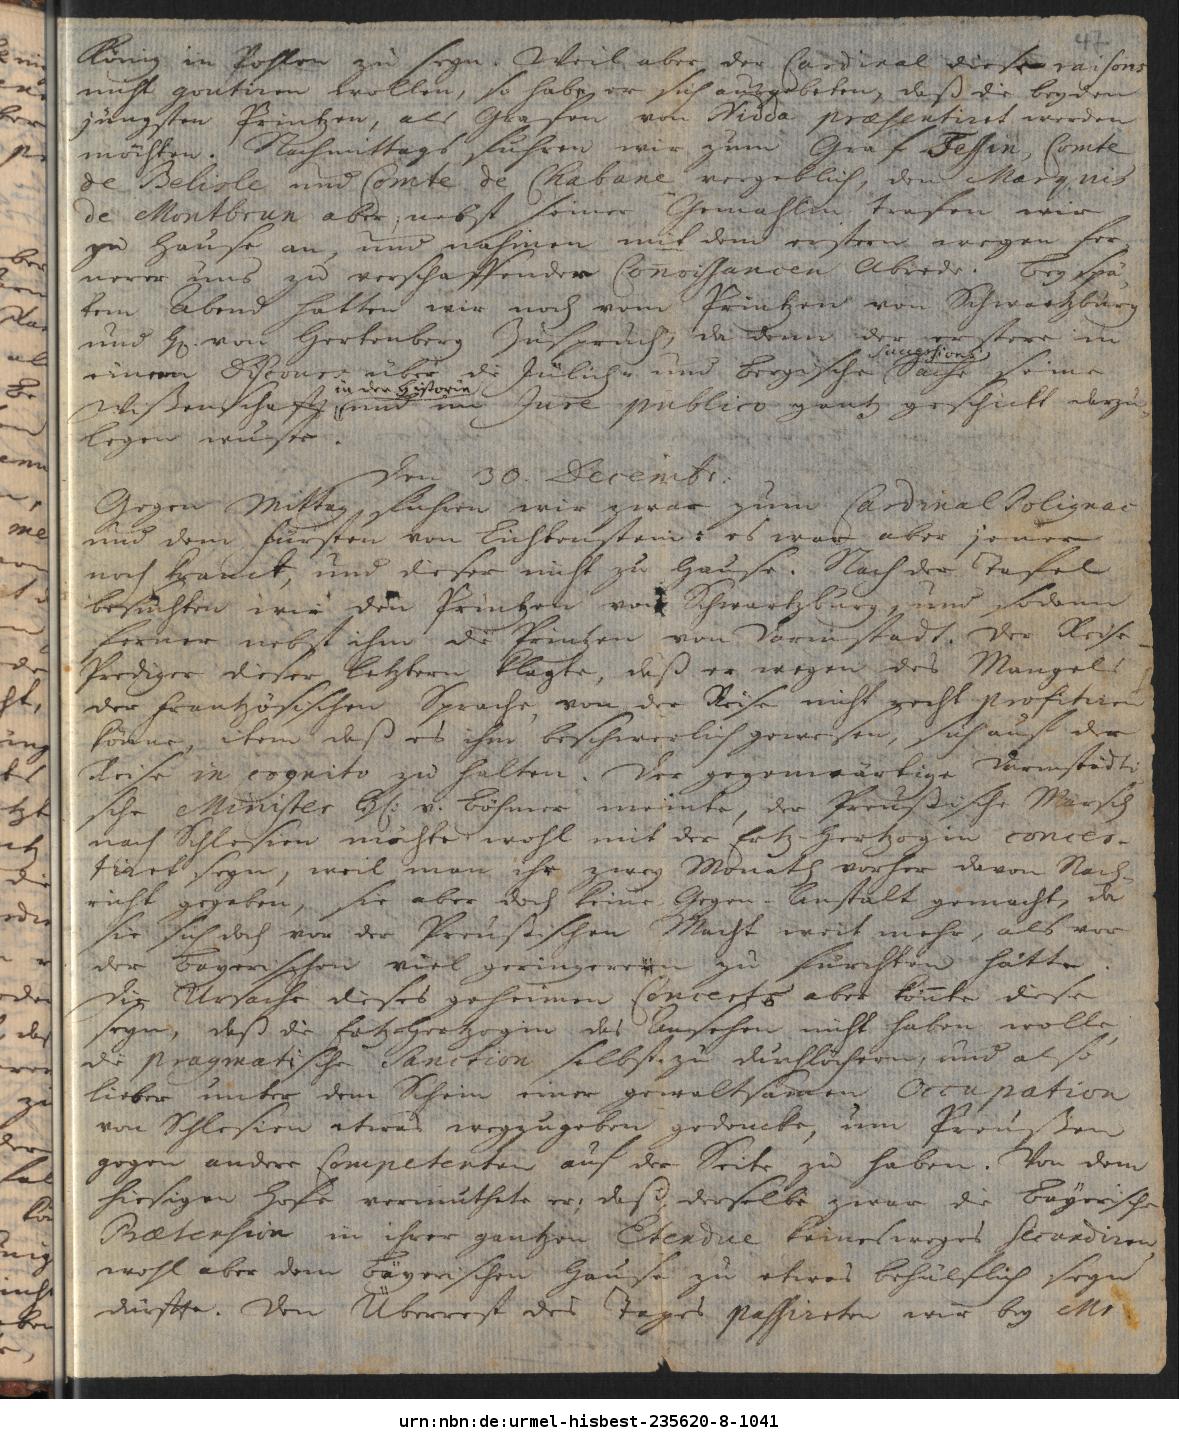 47
König in Pohlen zu seyn. Weil aber der Cardinal diese raisons
nicht goutiren wollen, so habe er sich ausgebeten, daß die beyden
jüngsten Printzen, als Grafen von Nidda præsentiret werden
möchten. Nachmittags fuhren wir zum Graf Tessin, Comte
de Belisle und Comte de Chabane vergeblich, den Marquis
de Montbrun aber, nebst seiner Gemahlin trafen wir
zu Hause an, und nahmen mit dem erstern wegen fer-
nerer uns zu verschaffenden Conoissancen Abrede. Bey spä-
tem Abend hatten wir noch vom Printzen von Schwartzburg
und H. von Hertenberg Zuspruch, da denn der erstere in
einem Discours über die Jülich- und Bergische Successions Sache seine
Wißenschafft in der Historie und im Jure publico gantz geschickt darzu-
legen wuste.
Den 30. Decembr.
Gegen Mittag fuhren wir zwar zum Cardinal Polignac
und dem Fürsten von Lichtenstein: es war aber jener
noch kranck, und dieser nicht zu Hause. Nach der Tafel
besuchten wir den Printzen von Schwartzburg, und sodann
ferner nebst ihm die Printzen von Darmstadt. Der Reise-
Prediger dieser letztern klagte, daß er wegen des Mangels
der Frantzösischen Sprache, von der Reise nicht recht profitiren
könne, item daß es ihm beschwerlich gewesen, sich auf der
Reise in cognito zu halten. Der gegenwärtige Darmstädti-
sche Minister H. v. Böhmer meinte, der Preußische Marsch
nach Schlesien möchte wohl mit der Ertz-Hertzogin concer-
tiret seyn, weil man ihr zwey Monath vorher davon Nach-
richt gegeben, sie aber doch keine Gegen-Anstalt gemacht, da
sie sich doch vor der Preußischen Macht weit mehr, als vor
der Bayerischen viel geringeren zu fürchten hätte.
Die Ursache dieses geheimen Concerts aber könnte diese
seyn, daß die Ertz-Hertzogin das Ansehen nicht haben wolle,
die pragmatische Sanction selbst zu durchlöchern, und also
lieber unter dem Schein einer gewaltsamen Occupation
von Schlesien etwas wegzugeben gedencke, um Preußen
gegen andere Competenten auf der Seite zu haben. Von dem
hiesigen Hofe vermuthete er, daß derselbe zwar die Bayerische
Prætension in ihrer gantzen Etendue keinesweges secundiren,
wohl aber dem Bayerischen Hause zu etwas behülflich seyn
dürffte. Den Überrest des Tages passireten wir bey Mr
urn:nbn:de:urmel-hisbest-235620-8-1041